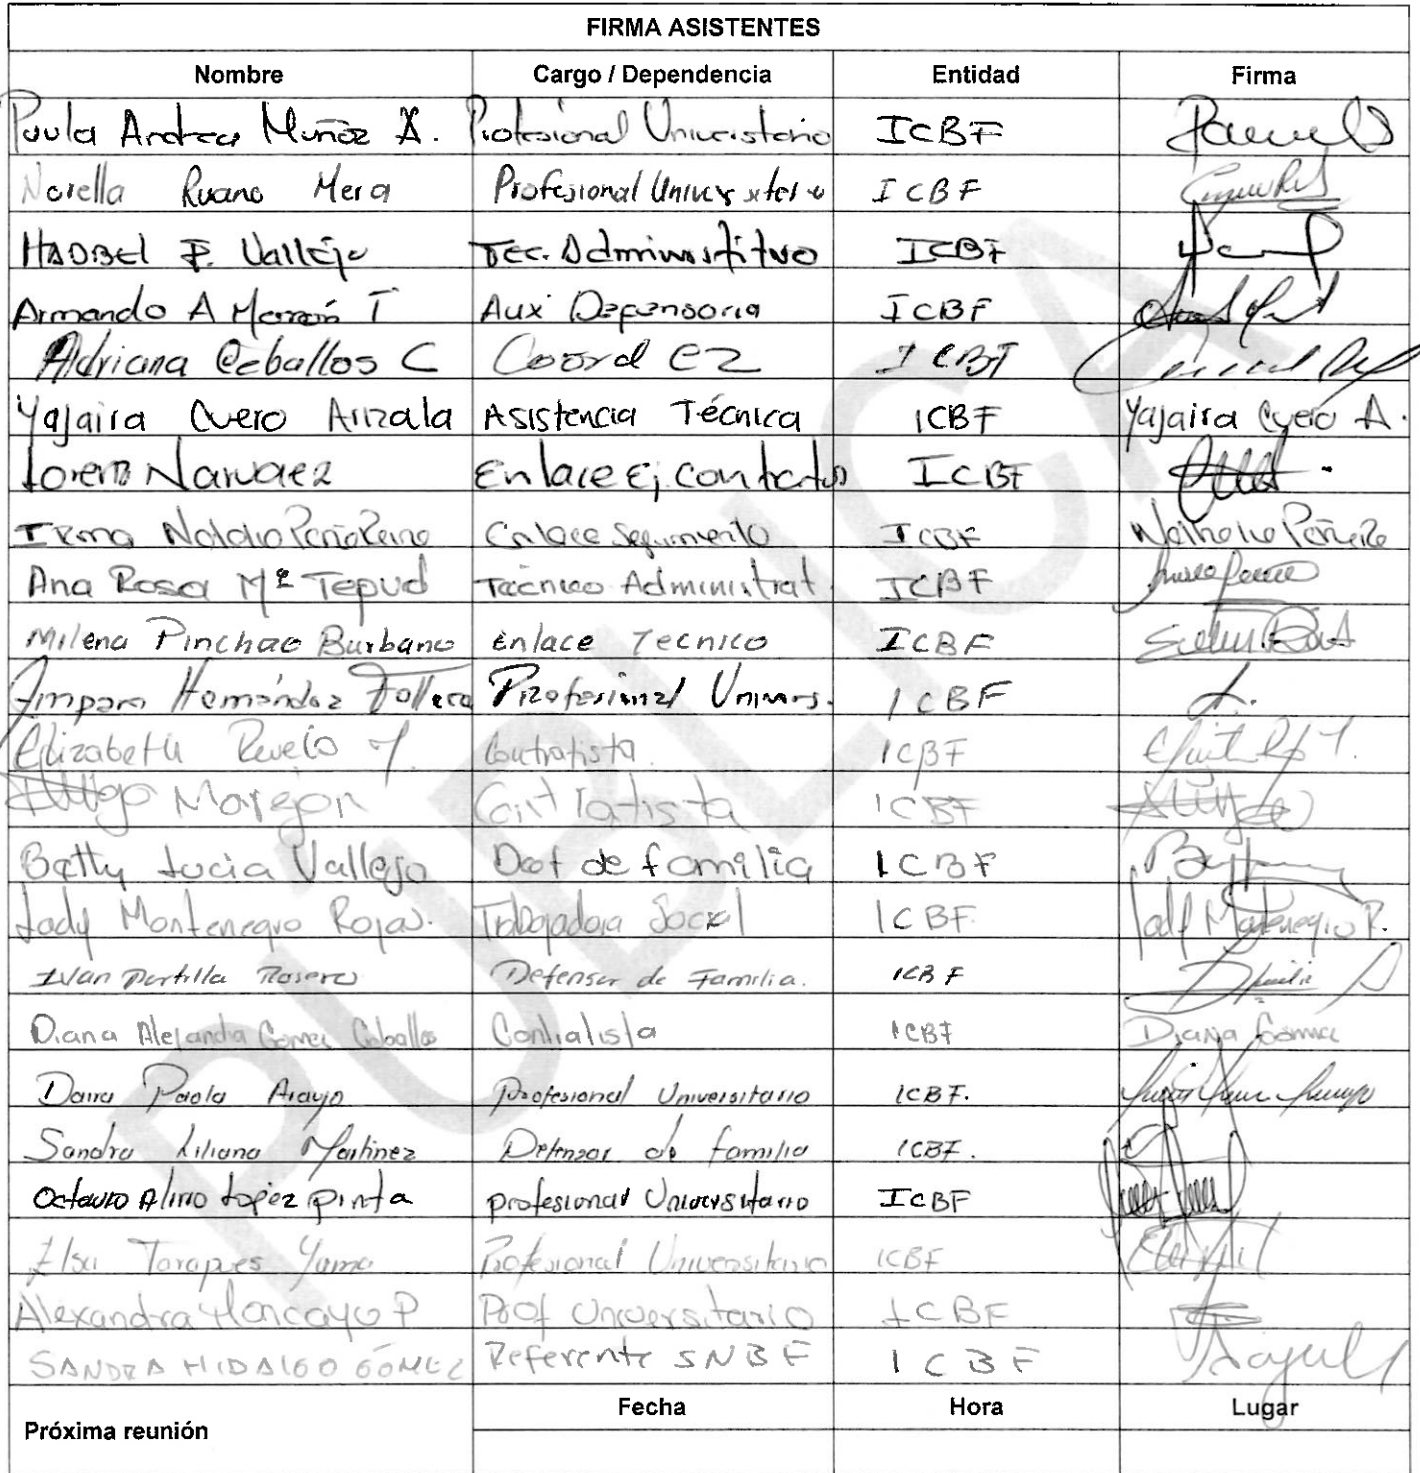 FIRMA ASISTENTES
Nombre Cargo / Dependencia Entidad Firma
Paula Andrea Muñoz A. Profesional Universitario ICBF
Norella Ruano Mera Profesional Universitario ICBF
P. Vallejo Tec. Administrativo ICBF
Armando A T Aux Defensoria ICBF
Adriana Ceballos C Coord CZ ICBF
Yajaira Cuero Arizala Asistencia Técnica ICBF Yajaira Cuero A.
Lorena Narvaez Enlace Ej Contratos ICBF
Irma Enlace Seguimiento ICBF
Ana Rosa Mª Tepud Técnico Administrat. ICBF
Milena Pinchao Burbano Enlace Tecnico ICBF
Amparo Hernández Profesional Univers. ICBF
Elizabeth Revelo Contratista. ICBF
Contratista ICBF
Betty Lucia Vallejo Deof de familia ICBF
Lady Montenegro Rojas. Trabajadora Social ICBF. Montenegro R.
Ivan Portilla Rosero Defensor de Familia. ICBF
Diana Alejandra Gomez Ceballos Contratista ICBF Diana Gomez
Paola Araujo Profesional Universitario ICBF.
Sandra Liliana Martinez Defensor de familia ICBF.
Octavio Alirio Lopez pinta profesional Universitario ICBF
Elsa Tarapues Yama Profesional Universitario ICBF
Alexandra Moncayo P Prof Universitario ICBF
SANDRA HIDALGO GÓMEZ Referente SNBF ICBF
Próxima reunión Fecha Hora Lugar
PUBLICA